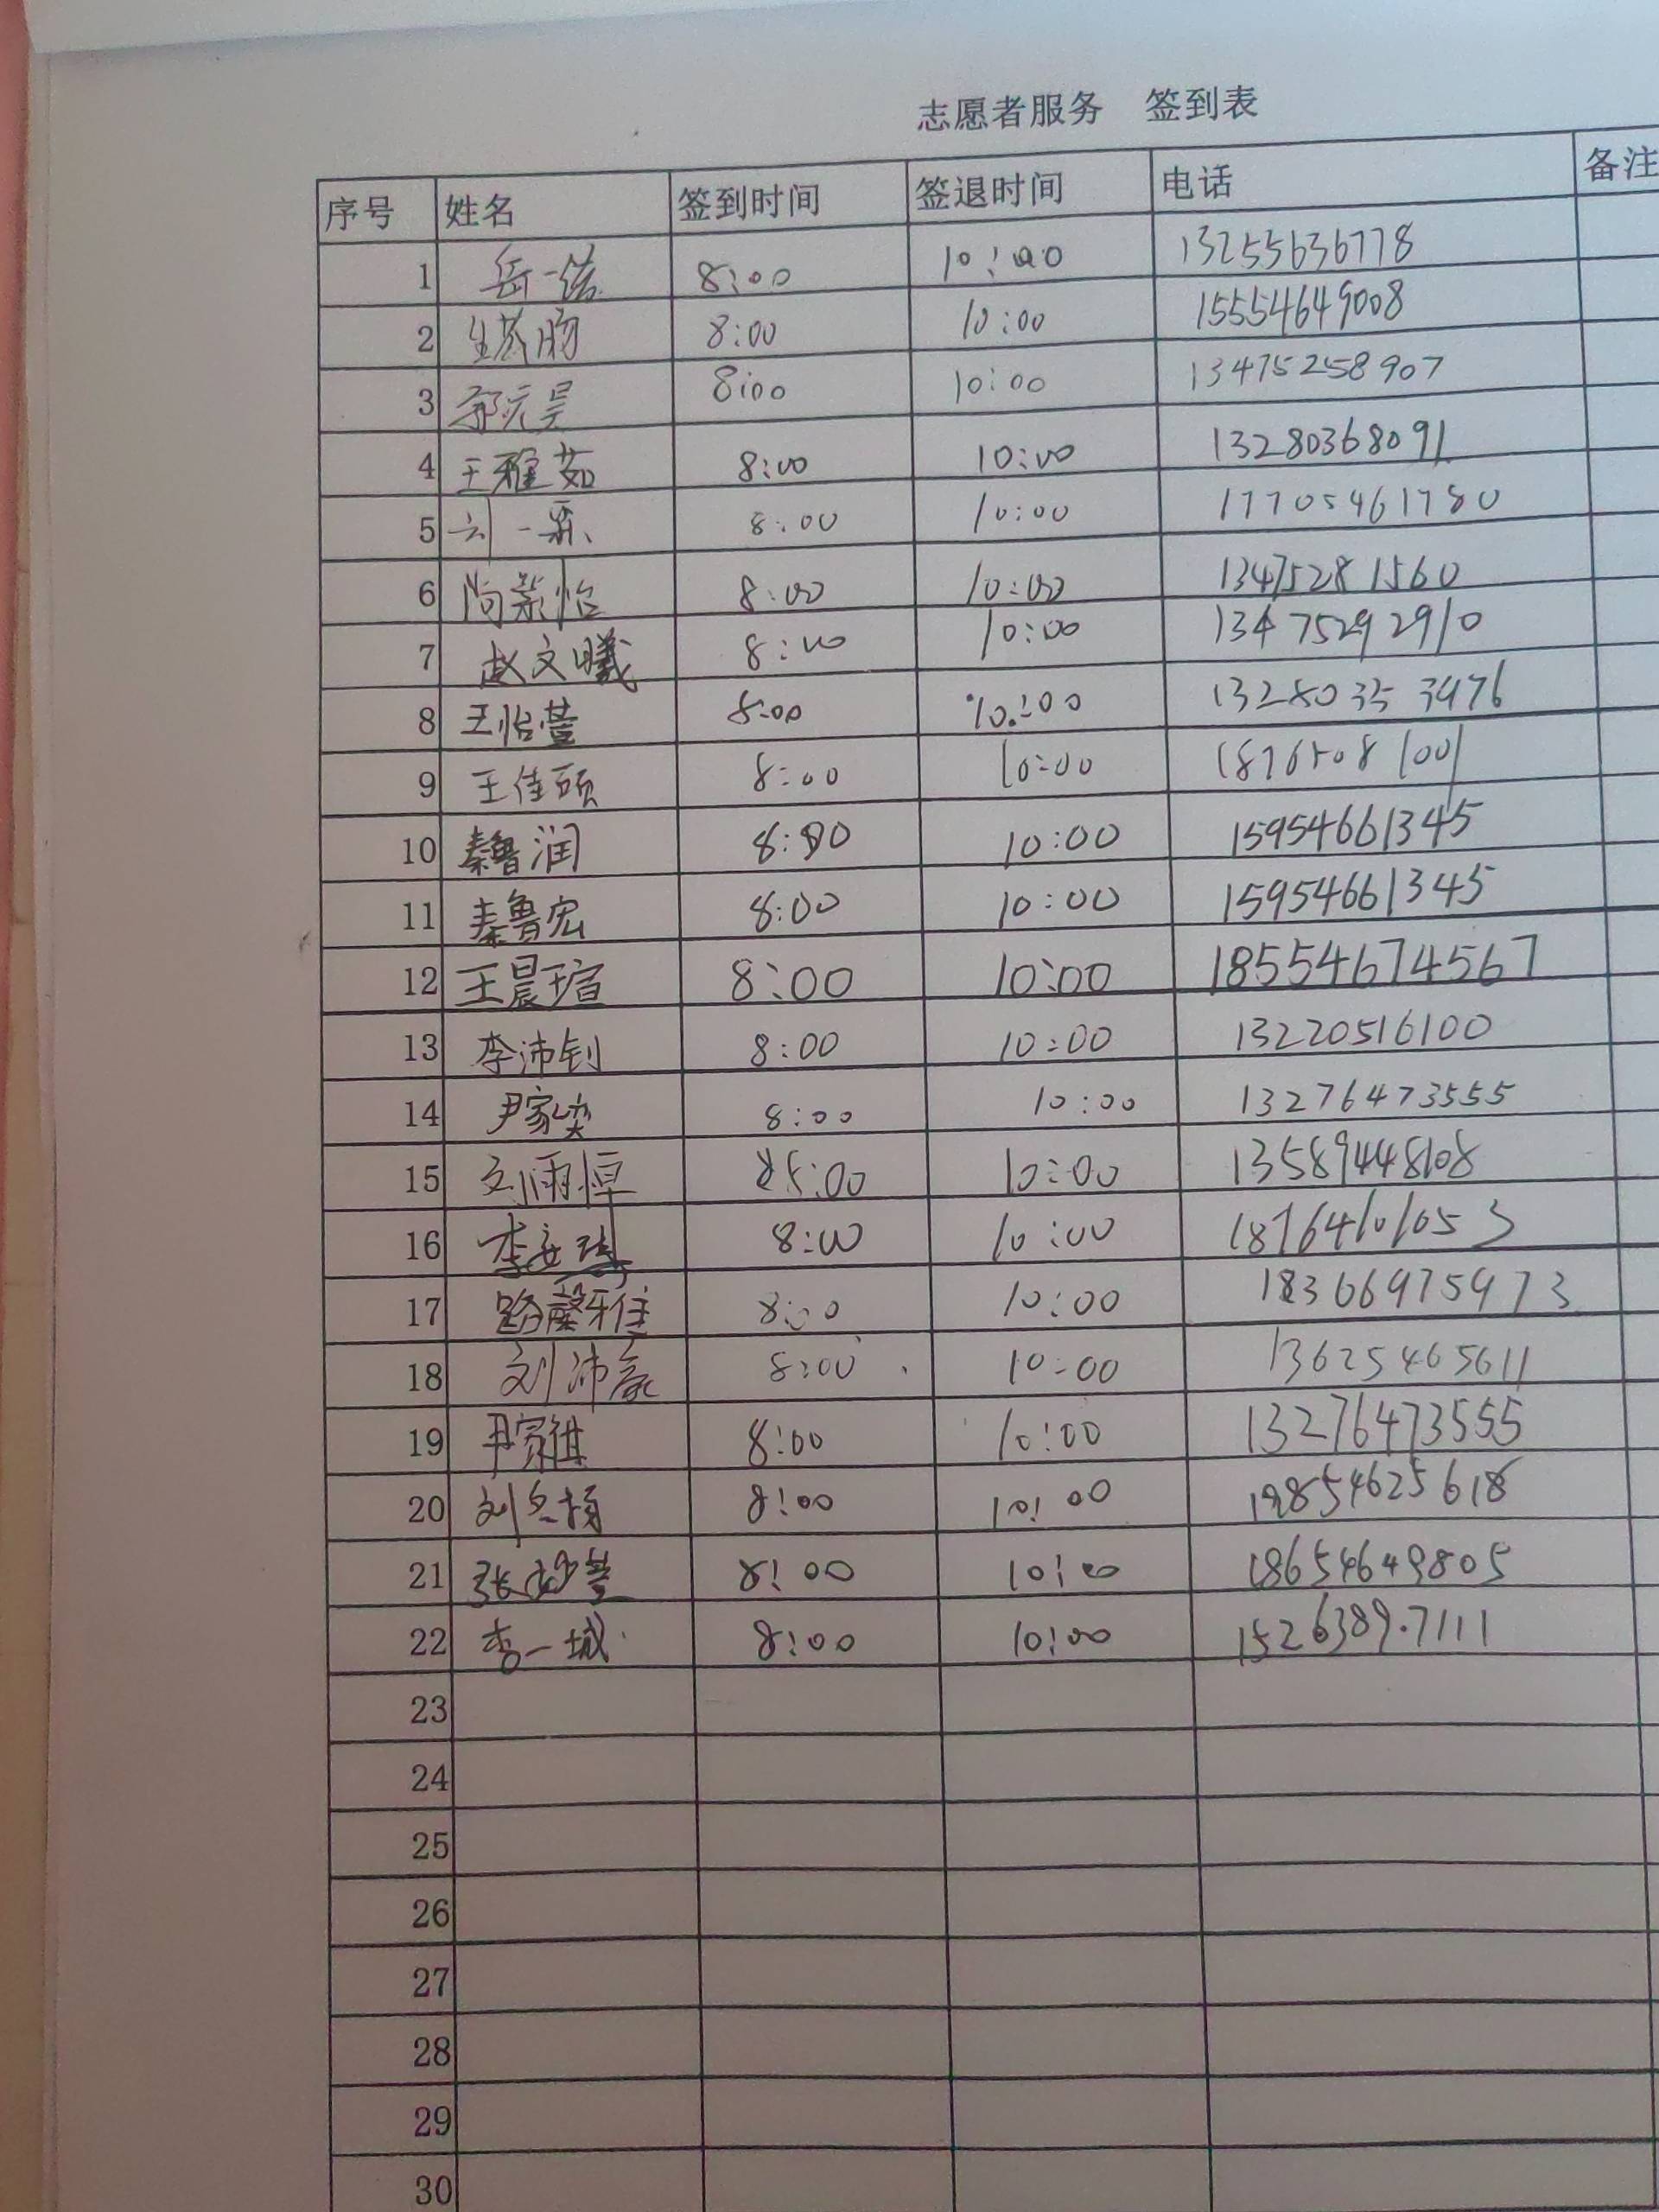 志愿者服务 签到表
序号 姓名 签到时间 签退时间 电话 备注
1 岳一 8:00 10:00 13255636778
2 8:00 10:00 15554649008
3 郭元昊 8:00 10:00 13475258907
4 王雅茹 8:00 10:00 13280368091
5 刘一霏 8:00 10:00 17705461780
6 尚景怡 8:00 10:00 13475281560
7 赵文曦 8:00 10:00 13475292910
8 王怡萱 8:00 10:00 13280353476
9 王佳硕 8:00 10:00 18765081001
10 秦鲁润 8:00 10:00 15954661345
11 秦鲁宏 8:00 10:00 15954661345
12 王晨瑄 8:00 10:00 18554674567
13 李沛钊 8:00 10:00 13220516100
14 尹家 8:00 10:00 13276473555
15 刘雨 8:00 10:00 13589448108
16 李安琦 8:00 10:00 18764101053
17 路馨雅 8:00 10:00 18366975973
18 刘沛 8:00 10:00 13625465611
19 尹家祺 8:00 10:00 13276473555
20 刘 8:00 10:00
21 张妙萱 8:00 10:00 18654649805
22 李一城 8:00 10:00 15263897111
23
24
25
26
27
28
29
30